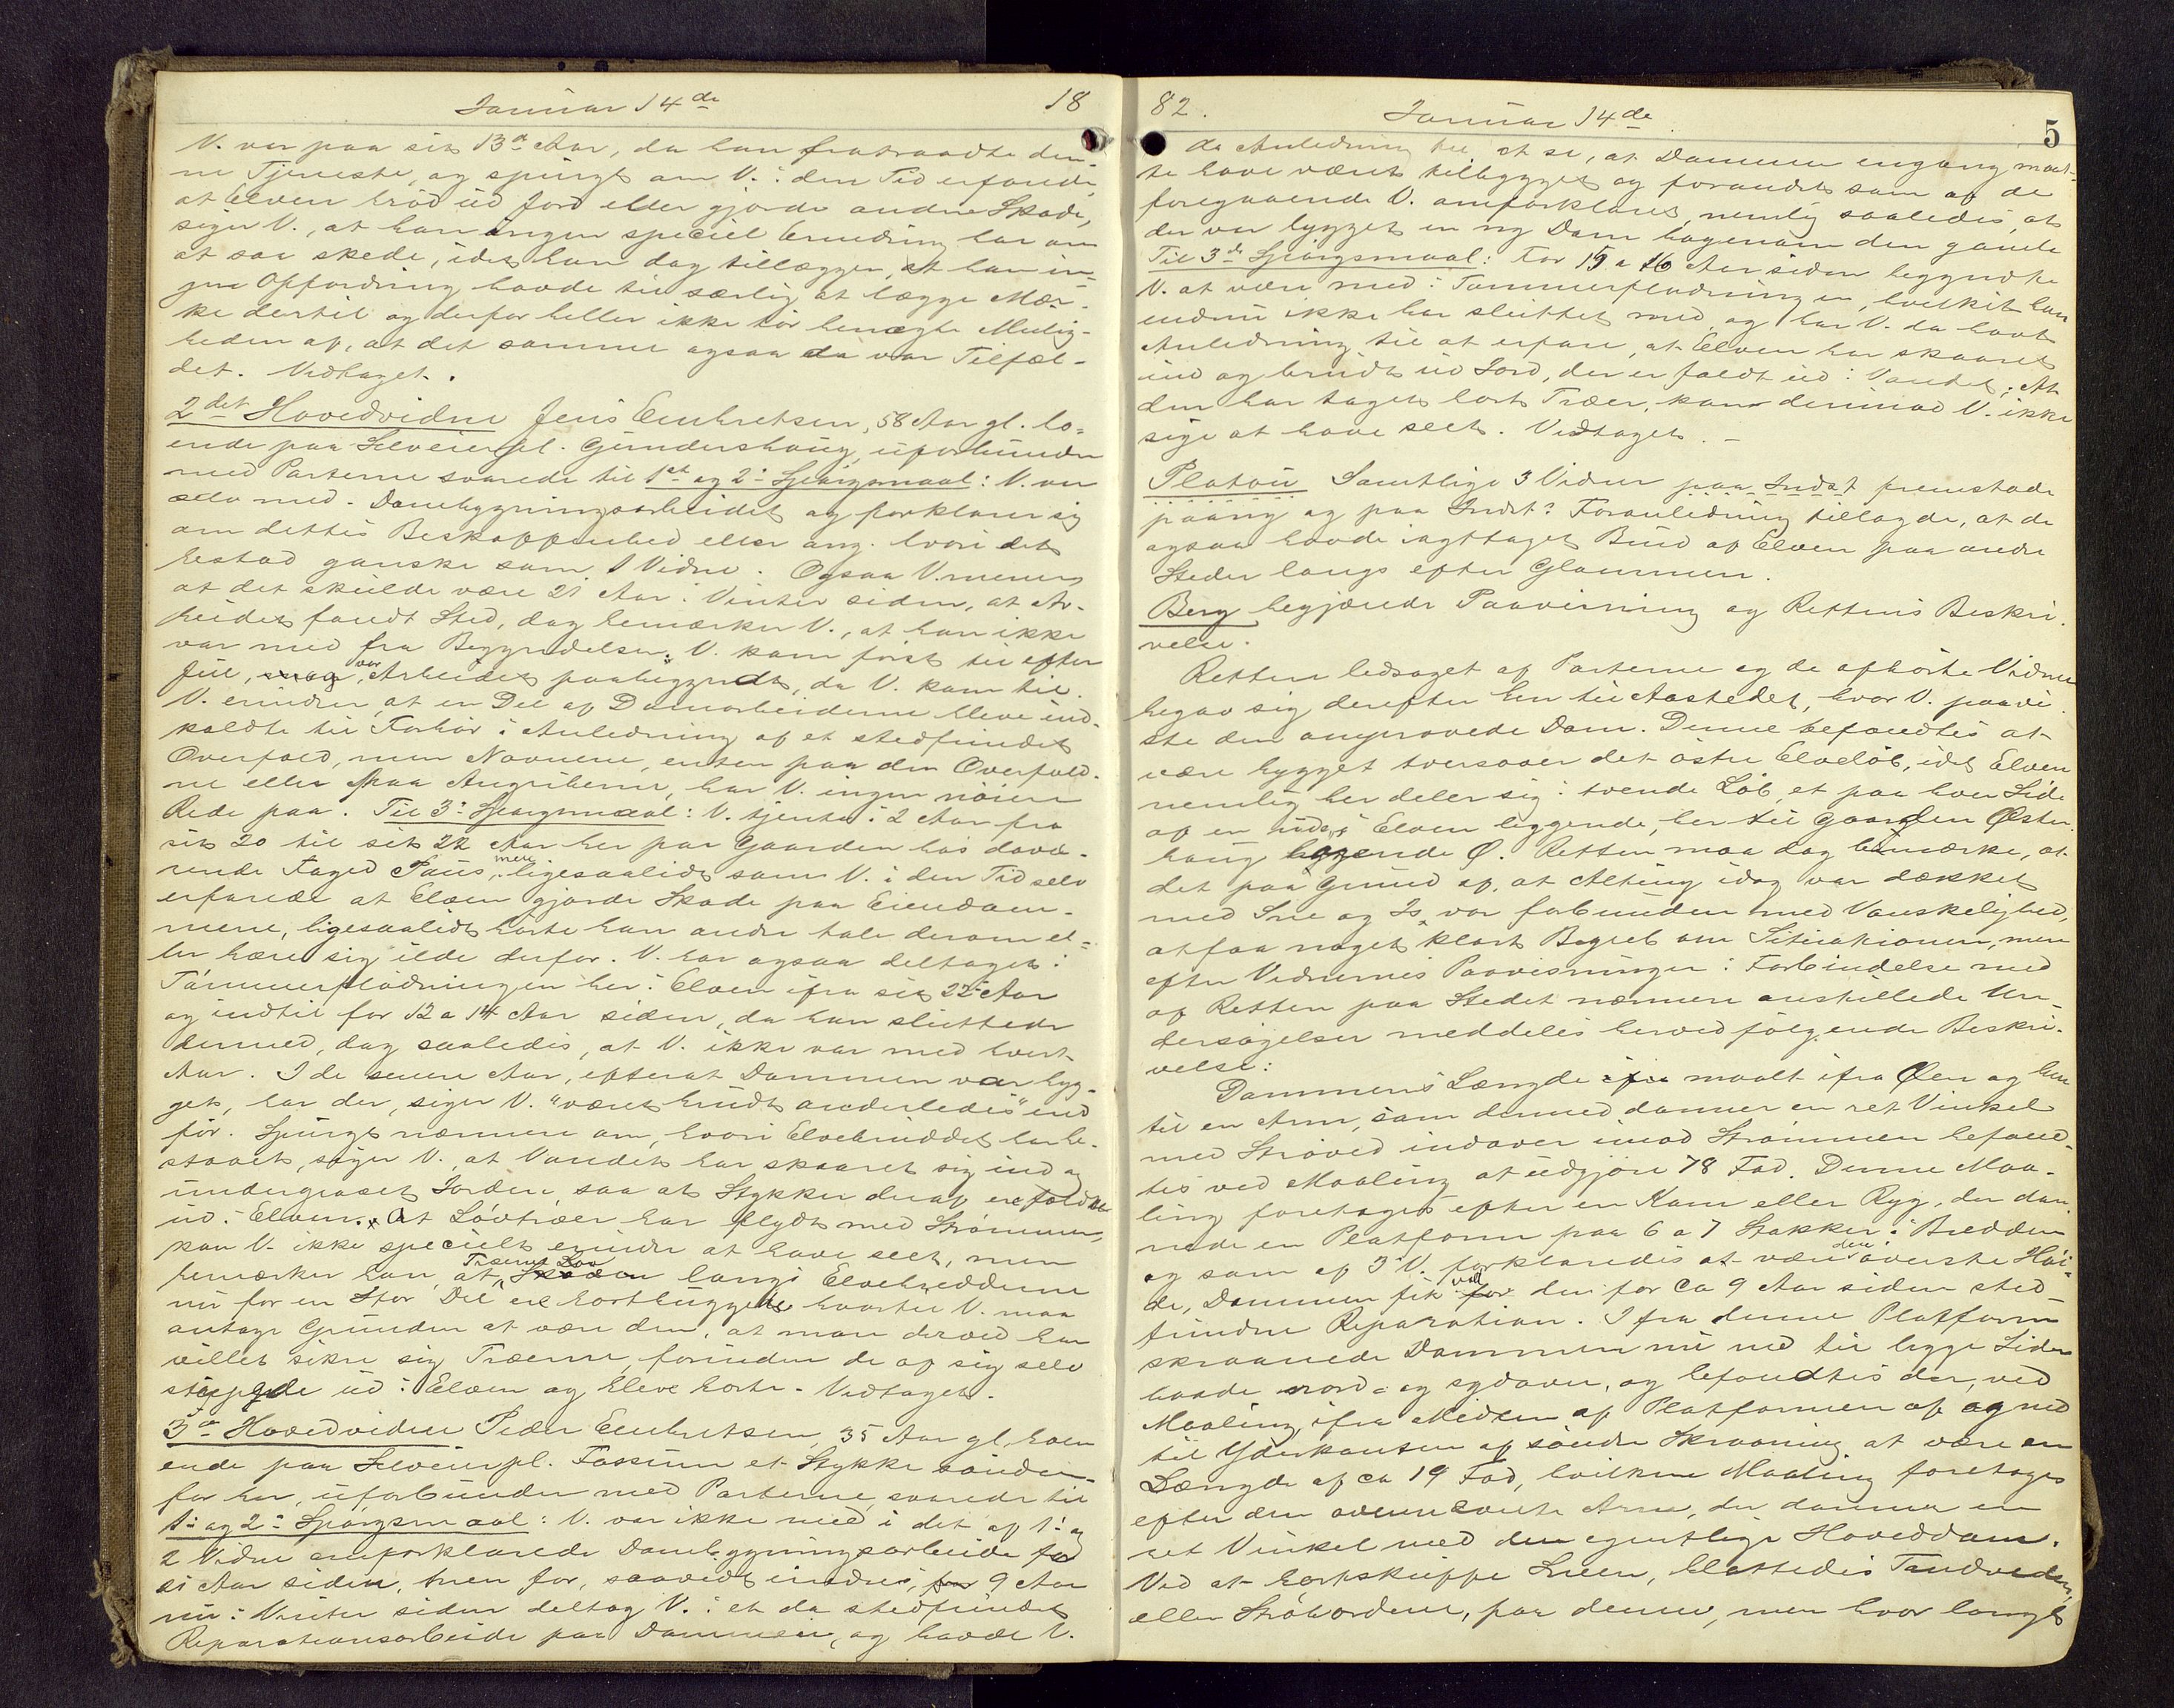 Januar 14de 18
V. var paa sit 13de Aar, da han fratraadte den-
ne Tjeneste, og spurgt om V. i den Tid erfarede,
at Elven brød ud Jord eller gjorde anden Skade,
siger V., at han ingen speciel Erindring har om
at saa skede, idet han dog tillægger, at han in-
gen Opfordring havde til særlig at lægge Mær-
ke dertil og derfor heller ikke tør benægte Mulig-
heden af, at det samme ogsaa da var Tilfæl-
det. Vedtaget.
2det Hovedvidne Jens Embretsen, 58 Aar gl. bo-
ende paa Selveierpl. Gundershaug, uforbunden
med Parterne svarede til 1st og 2: Spørgsmaal: V. var
selv med i Dambygningsarbeidet og forklarer sig
om dettes Beskaffenhed eller ang. hvori det
bestod ganske som 1 Vidne. Ogsaa V. mener
at det skulde være 21 Aar i Vinter siden, at Ar-
beidet fandt Sted, dog bemærker V., at han ikke
var med fra Begyndelsen. V. kom først til efter
Jul, var Arbeidet paabegyndt, da V. kom til.
V. erindrer, at en Del af Damarbeiderne bleve ind-
kaldte til Forhør i Anledning af et stedfundet
Overfald, men Navnene, enten paa den Overfald-
ne eller paa Angriberne, har V. ingen nøiere
Rede paa. Til 3: Spørgsmaal: V. tjente i 2 Aar fra
sit 20 til sit 22 Aar her paa Gaarden hos davæ-
rende Foged Paus, men ligesaalidt som V. i den Tid selv
erfarede at Elven gjorde Skade paa Eiendom-
mene, ligesaalidt hørte han andre tale derom el-
ler bære sig ilde derfor. V. har ogsaa deltaget i
Tømmerflødningen her i Elven ifra sit 22de Aar
og indtil for 12 a 14 Aar siden, da han sluttede
dermed, dog saaledes, at V. ikke var med hvert
Aar. I de senere Aar, efterat Dammen var byg-
get, har der, siger V. "været brudt anderledes" end
før. Spurgt nærmere om, hvori Elvebruddet har be-
staaet, siger V., at Vandet har skaaret sig ind og
undergravet Jorden, saa at Stykker deraf ere faldne
ud i Elven. At Løvtræer har flydt med Strømmen,
kan V. ikke specielt erindre at have seet, men
bemærker han, at Træerne langs Elvebredderne
nu for en Stor Del ere borthuggede hvortil V. maa
antage Grunden at være den, at man derved har
villet sikre sig Træerne, forinden de af sig selv
stuppede ud i Elven og bleve borte. Vedtaget.
3de Hovedvidne Peder Embretsen, 35 Aar gl., boen
ende paa Selveierpl. Fossum et Stykke sønden-
for her, uforbunden med Parterne, svarede til
1: og 2: Spørgsmaal: V. var ikke med i det af 1: og
2 Vidne omforklarede Dambygningsarbeide for
21 Aar siden, men for, saavidt erindres, 9 Aar
nu i Vinter siden deltog V. i et da stedfundet
Reparationsarbeide paa Dammen, og havde V.
82. Januar 14de 5
da Anledning til at se, at Dammen engang maat-
te have været tilbygget og forandret som af de
foregaaende V. omforklaret, nemlig saaledes, at
der var bygget en ny Dam bagenom den gamle
Til 3de Spørgsmaal: For 15 a 16 Aar siden begyndte
V. at være med i Tømmerflødningen, hvilket han
endnu ikke har sluttet med, og har V. da havt
Anledning til at erfare, at Elven har skaaret
ind og brudt ud Jord, der er faldt ud i Vandet. At
den har taget bort Træer, kan derimod V. ikke
sige at have seet. Vedtaget. –
Platou Samtlige 3 Vidner paa Indst fremstode
paany og paa Indst? Foranledning tillagde, at de
ogsaa havde iagttaget Brud af Elven paa andre
Steder langs efter Glommen.
Berg begjærede Paavisning og Rettens Beskri-
velse.
Retten ledsaget af Parterne og de afhørte Vidner
begav sig derefter hen til Aastedet, hvor V. paavi-
ste den omprovede Dam. Denne befandtes at
være bygget tversover det østre Elveløb, idet Elven
nemlig her deler sig i tvende Løb, et paa hver Side
af en midt i Elven liggende, her til Gaarden Øster-
haug hørende Ø. Retten maa dog bemærke, at
det paa Grund af, at Alting idag var dækket
med Sne og Is, var forbunden med Vanskelighed,
at faa noget klart Begreb om Situationen, men
efter Vidnernes Paavisninger i Forbindelse med
af Retten paa Stedet nærmere anstillede Un-
dersøgelser meddeles herved følgende Beskri-
velse:
Dammens Længde maalt ifra Øen og hen
til en Arm, som dermed danner en ret Vinkel
med Strøved indover imod Strømmen befand-
tes ved Maaling at udgjøre 78 Fod. Denne Maa-
ling foretoges efter en Kam eller Ryg, der dan-
nede en Platform paa 6 a 7 Stokker i Bredden
og som af 3: V. forklaredes at være den øverste Høi-
de, Dammen fik ved den for ca 9 Aar siden sted-
fundne Reparation. Ifra denne Platform
skraanede Dammen nu ned til begge Sider
baade nord- og sydover, og befandtes der, ved
Maaling ifra Midten af Platformen af og ned
til Yderkanten af søndre Skraaning at være en
Længde af ca 19 Fod, hvilken Maaling foretoges
efter den ovennævnte Arm, der danner en
ret Vinkel med den egentlige Hoveddam.
Ved at bortskuffe Sneen, blottedes Tandveden,
eller Strøbordene, paa denne, men hvor langt